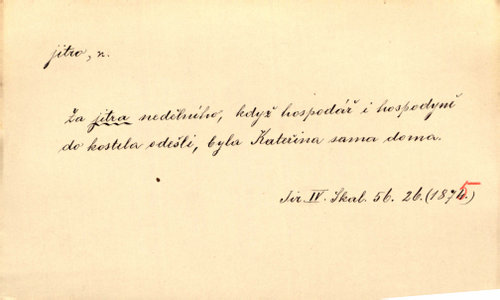 jitro, n.
Za jitra nedělního, když hospodář i hospodyně
do kostela odešli, byla Kateřina sama doma.
Jir. IV. Skal. 56. 26. (1875)